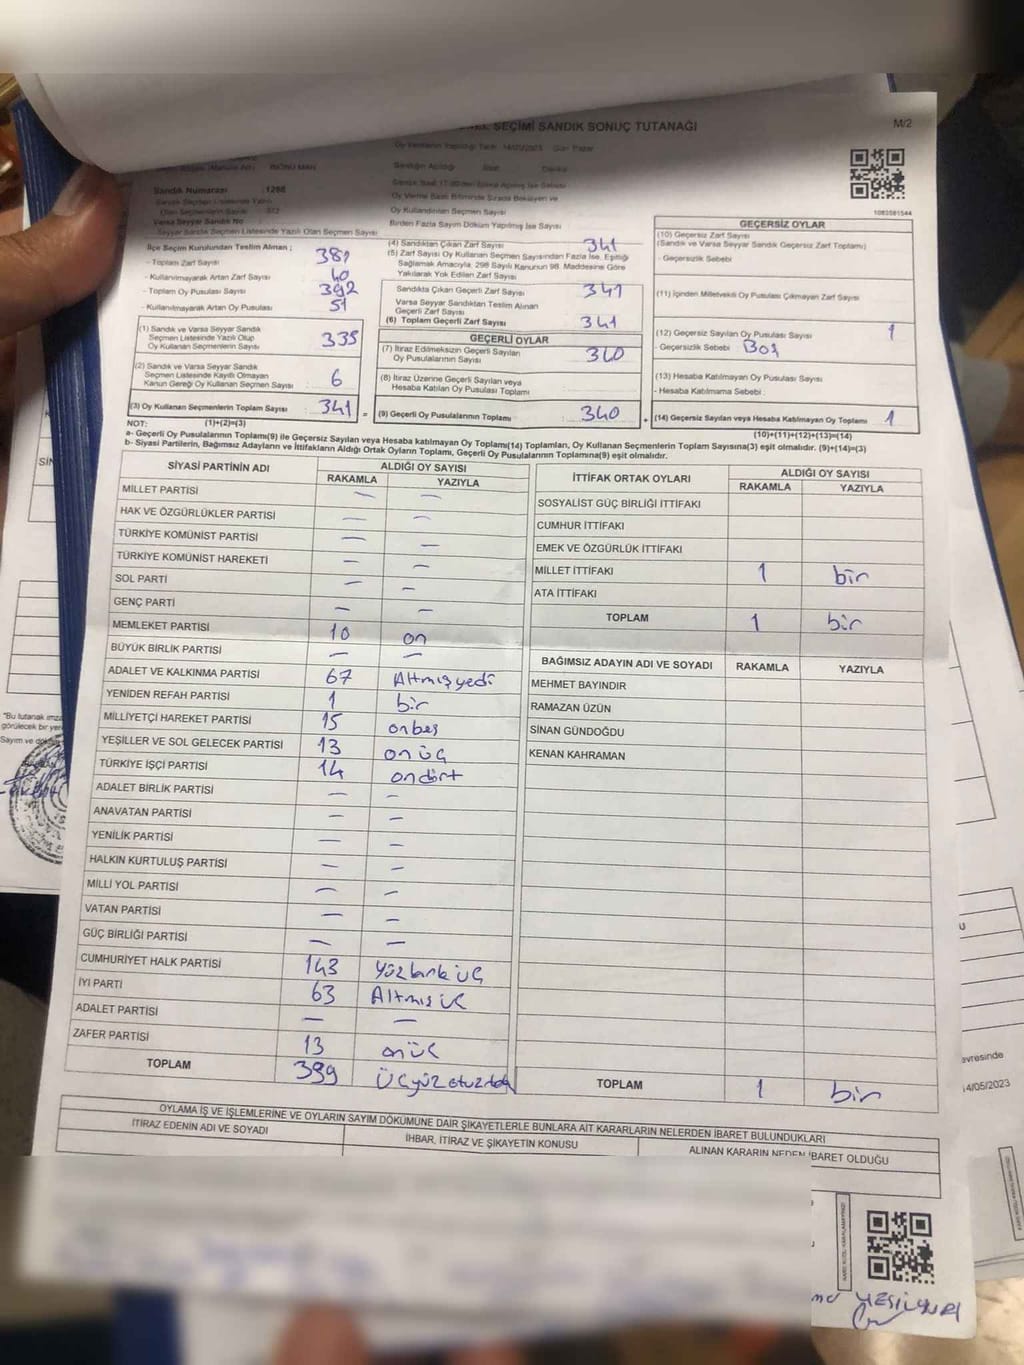 SEÇİMİ SANDIK SONUÇ TUTANAĞI
M/2
Sandık Numarası : 1268
1083581544
İlçe Seçim Kurulundan Teslim Alınan ;
- Toplam Zarf Sayısı 381
- Kullanılmayarak Artan Zarf Sayısı 40
- Toplam Oy Pusulası Sayısı 392
- Kullanılmayarak Artan Oy Pusulası 51
(1) Sandık ve Varsa Seyyar Sandık
Seçmen Listesinde Yazılı Olup
Oy Kullanan Seçmenlerin Sayısı 335
(2) Sandık ve Varsa Seyyar Sandık
Seçmen Listesinde Kayıtlı Olmayan
Kanun Gereği Oy Kullanan Seçmen Sayısı : 6
(3) Oy Kullanan Seçmenlerin Toplam Sayısı : 341 =
(1)+(2)=(3)
Oy Kullandırılan Seçmen Sayısı
Birden Fazla Sayım Döküm Yapılmış İse Sayısı
(4) Sandıktan Çıkan Zarf Sayısı 341
(5) Zarf Sayısı Oy Kullanan Seçmen Sayısından Fazla İse, Eşitliği
Sağlamak Amacıyla, 298 Sayılı Kanunun 98. Maddesine Göre
Yakılarak Yok Edilen Zarf Sayısı
Sandıkta Çıkan Geçerli Zarf Sayısı 341
Varsa Seyyar Sandıktan Teslim Alınan
Geçerli Zarf Sayısı
(6) Toplam Geçerli Zarf Sayısı 341
GEÇERLİ OYLAR
(7) İtiraz Edilmeksizin Geçerli Sayılan
Oy Pusulalarının Sayısı 340
(8) İtiraz Üzerine Geçerli Sayılan veya
Hesaba Katılan Oy Pusulası Toplamı
(9) Geçerli Oy Pusulalarının Toplamı : 340 +
GEÇERSİZ OYLAR
(10) Geçersiz Zarf Sayısı
(Sandık ve Varsa Seyyar Sandık Geçersiz Zarf Toplamı)
- Geçersizlik Sebebi
(11) İçinden Milletvekili Oy Pusulası Çıkmayan Zarf Sayısı
(12) Geçersiz Sayılan Oy Pusulası Sayısı 1
- Geçersizlik Sebebi Boş
(13) Hesaba Katılmayan Oy Pusulası Sayısı
- Hesaba Katılmama Sebebi :
(14) Geçersiz Sayılan veya Hesaba Katılmayan Oy Toplamı 1
(10)+(11)+(12)+(13)=(14)
NOT:
a- Geçerli Oy Pusulalarının Toplamı(9) ile Geçersiz Sayılan veya Hesaba katılmayan Oy Toplamı(14) Toplamları, Oy Kullanan Seçmenlerin Toplam Sayısına(3) eşit olmalıdır. (9)+(14)=(3)
b- Siyasi Partilerin, Bağımsız Adayların ve İttifakların Aldığı Ortak Oyların Toplamı, Geçerli Oy Pusulalarının Toplamına(9) eşit olmalıdır.
SİYASİ PARTİNİN ADI ALDIĞI OY SAYISI
RAKAMLA YAZIYLA
MİLLET PARTİSİ — —
HAK VE ÖZGÜRLÜKLER PARTİSİ — —
TÜRKİYE KOMÜNİST PARTİSİ — —
TÜRKİYE KOMÜNİST HAREKETİ — —
SOL PARTİ — —
GENÇ PARTİ — —
MEMLEKET PARTİSİ 10 on
BÜYÜK BİRLİK PARTİSİ — —
ADALET VE KALKINMA PARTİSİ 67 Altmışyedi
YENİDEN REFAH PARTİSİ 1 bir
MİLLİYETÇİ HAREKET PARTİSİ 15 onbeş
YEŞİLLER VE SOL GELECEK PARTİSİ 13 onüç
TÜRKİYE İŞÇİ PARTİSİ 14 ondört
ADALET BİRLİK PARTİSİ — —
ANAVATAN PARTİSİ — —
YENİLİK PARTİSİ — —
HALKIN KURTULUŞ PARTİSİ — —
MİLLİ YOL PARTİSİ — —
VATAN PARTİSİ — —
GÜÇ BİRLİĞİ PARTİSİ — —
CUMHURİYET HALK PARTİSİ 143 yüzkırk üç
İYİ PARTİ 63 Altmış üç
ADALET PARTİSİ — —
ZAFER PARTİSİ 13 onüç
TOPLAM 339
İTTİFAK ORTAK OYLARI ALDIĞI OY SAYISI
RAKAMLA YAZIYLA
SOSYALİST GÜÇ BİRLİĞİ İTTİFAKI
CUMHUR İTTİFAKI
EMEK VE ÖZGÜRLÜK İTTİFAKI
MİLLET İTTİFAKI 1 bir
ATA İTTİFAKI
TOPLAM 1 bir
BAĞIMSIZ ADAYIN ADI VE SOYADI RAKAMLA YAZIYLA
MEHMET BAYINDIR
RAMAZAN ÜZÜN
SİNAN GÜNDOĞDU
KENAN KAHRAMAN
TOPLAM 1 bir
OYLAMA İŞ VE İŞLEMLERİNE VE OYLARIN SAYIM DÖKÜMÜNE DAİR ŞİKAYETLERLE BUNLARA AİT KARARLARIN NELERDEN İBARET BULUNDUKLARI
İTİRAZ EDENİN ADI VE SOYADI İHBAR, İTİRAZ VE ŞİKAYETİN KONUSU ALINAN KARARIN NEDEN İBARET OLDUĞU
"Bu tutanak imza
görülecek bir yer
Sayım ve
evresinde
14/05/2023